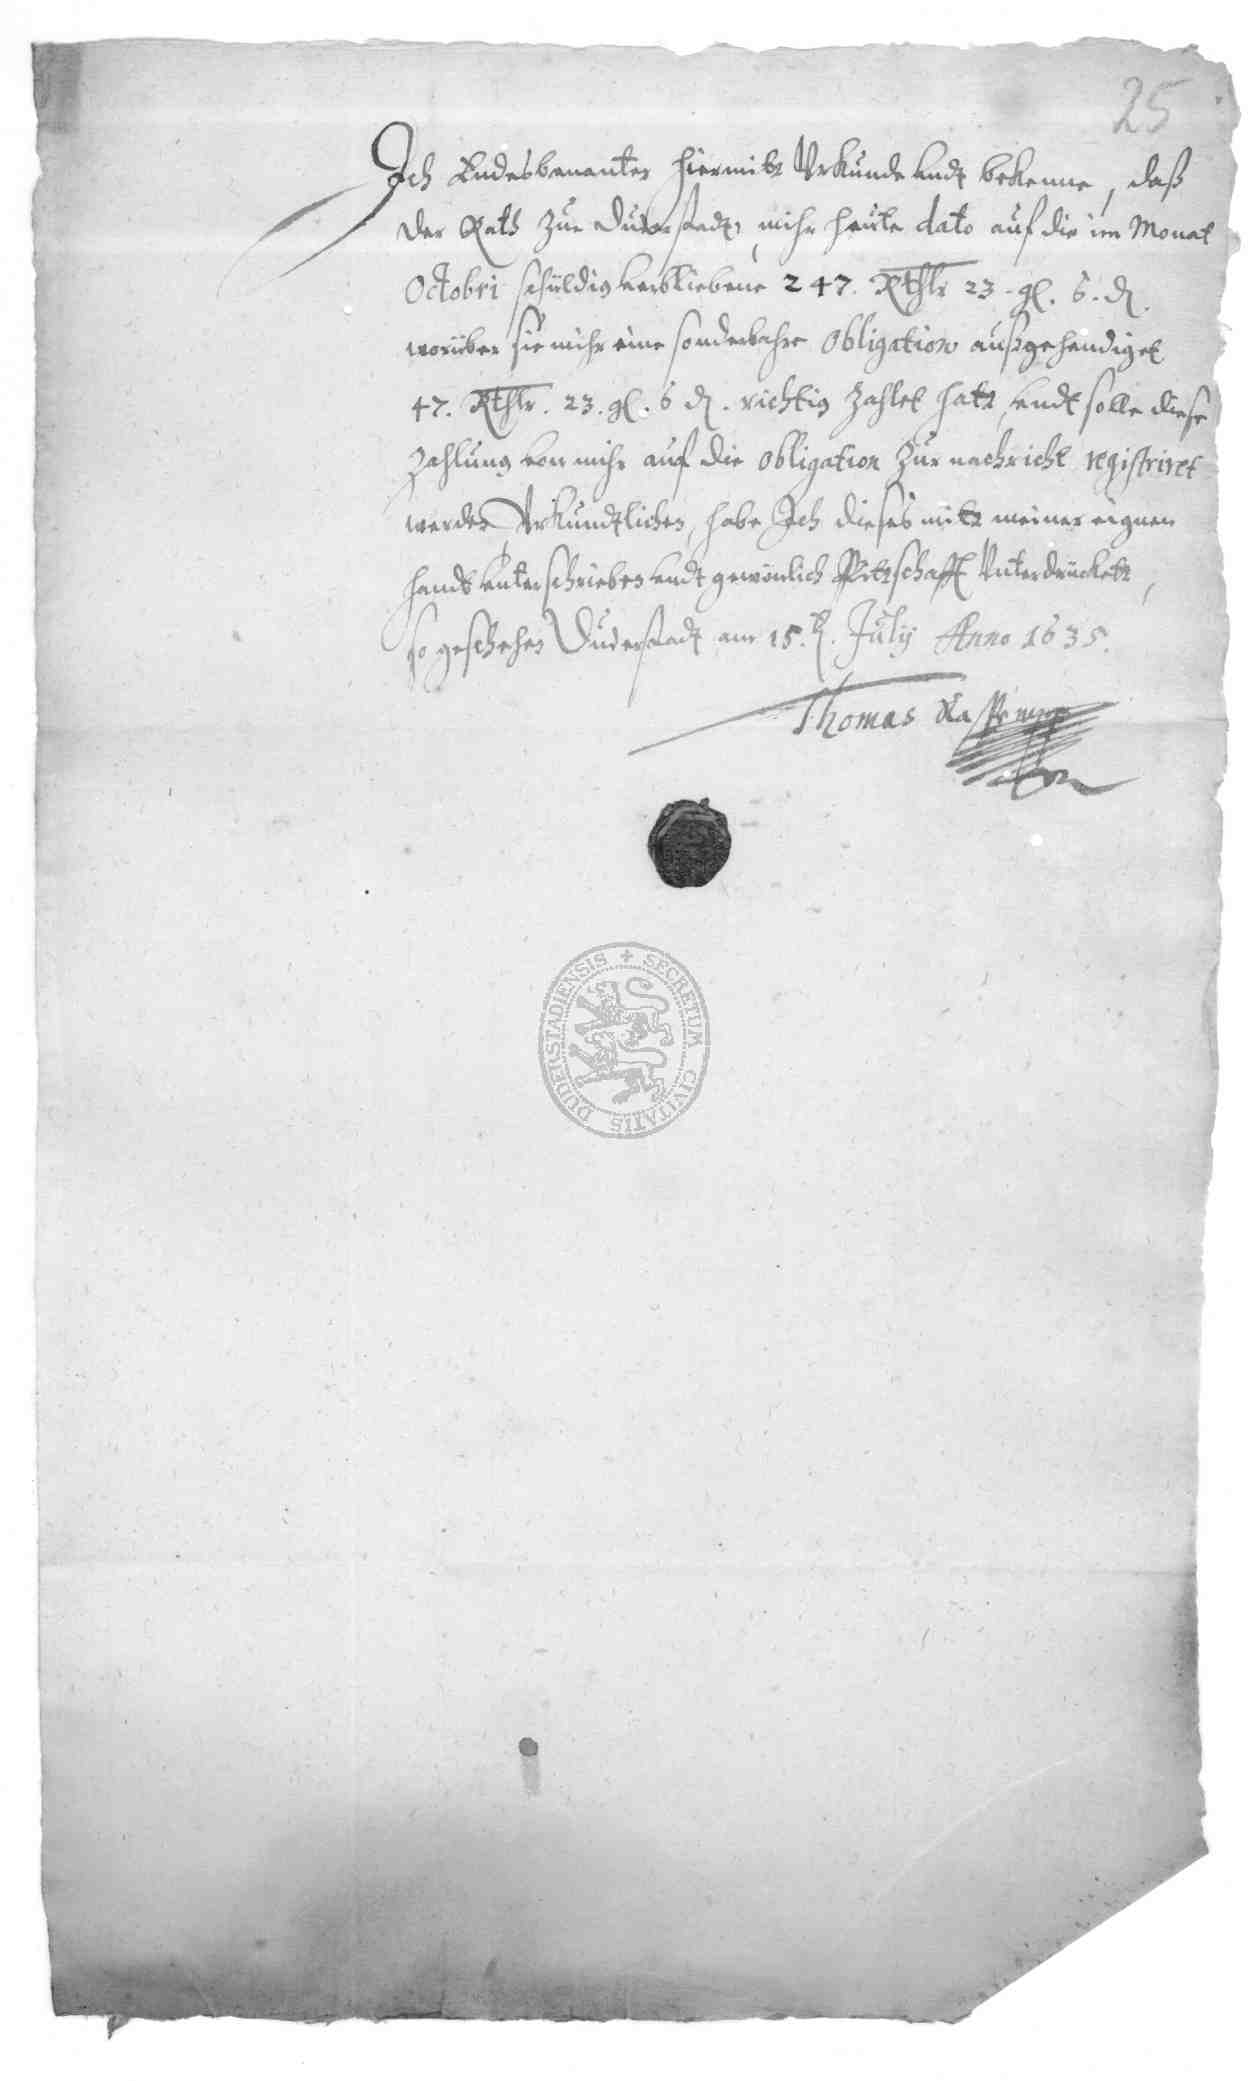 25
Ich Endesbenanter hiermitt Urkunde undt bekenne, daß
der Rath zue Duderstadt, mihr heute dato auf die im Monat
Octobri schüldig verbliebene 247. Rthlr 23 gl. 6. d.
worüber sie mihr eine sonderbahre Obligation außgehendiget
47. Rthlr. 23. gl. 6 d. richtig zahlet hatt, undt solle diese
Zahlung von mihr auf die Obligation zur nachricht registriret
werden, Urkundtlichen, habe Ich dieses mitt meiner eignen
handt unterschrieben undt gewönlich Pittschafft Unterdrückett,
so geschehen Duderstadt am 15. July Anno 1635.
Thomas
SECRETUM CIVITATIS DUDERSTADIENSIS